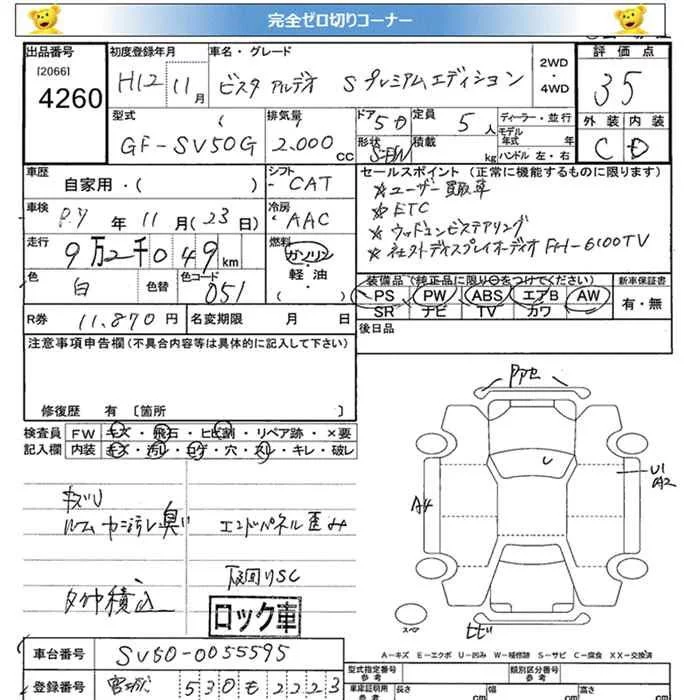 完全ゼロ切りコーナー
出品番号 初度登録年月 車名・グレード 2WD・4WD 評価点
[2066] 4260 H12 11月 ビスタ アルデオ Sプレミアムエディション 35
型式 排気量 ドア 定員 ディーラー・並行 外装 内装
GF-SV50G 2,000cc 5D 5人 モデル年式 年 C D
形状 積載 kg ハンドル 左・右
車歴 シフト セールスポイント (正常に機能するものに限ります)
自家用・( ) CAT ☆ユーザー買取車
☆ETC
車検 年 11月(23日) 冷房 AAC ☆ウッドコンビステアリング
走行 9万2千049km 燃料 ガソリン・軽油・( ) FH-6100TV
色 白 色替 色コード 051 装備品(純正品に限り○をつけてください) 新車保証書
PS PW ABS エアB AW 有・無
SR ナビ TV カワ
R券 11,870円 名変期限 月 日 後日品
注意事項申告欄(不具合内容等は具体的に記入して下さい)
修復歴 有 〔箇所 〕
検査員 FW キズ・飛石・ヒビ割・リペア跡・×要
記入欄 内装 キズ・汚れ・コゲ・穴・スレ・キレ・破レ
キズU
臭い エンドパネル歪み
下回りSC
タイヤ積込
ロック車
A4
U1
A2
スペア
A-キズ E-エクボ U-凹み W-補修跡 S-サビ C-腐食 XX-交換済
車台番号 SV50-0055595 型式指定番号 参考 類別区分番号 参考
登録番号 宮城 530 も 2223 車庫証明用 参考 長さ cm 幅 cm 高さ cm